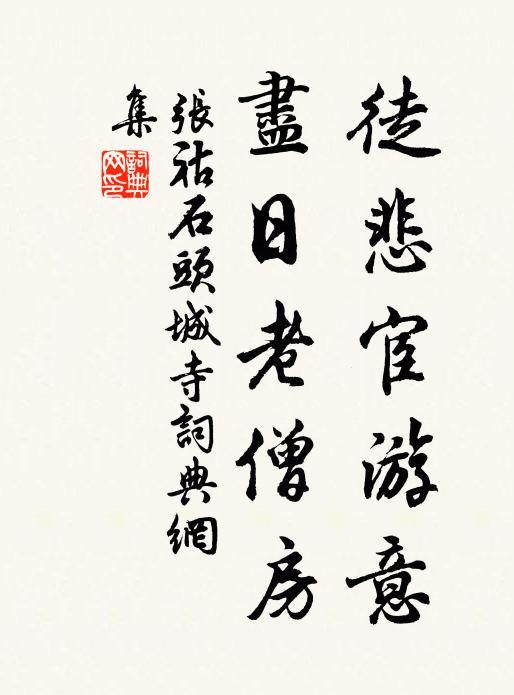 徒悲宦游意
盡日老僧房
張祜石頭城寺詞典網
集
詞典
网印